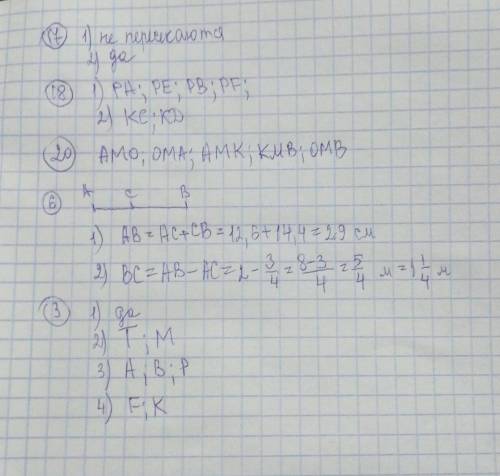 17 1) не пересекаются
2) да
18 1) PA; PE; PB; PF;
2) KC; KD
20 AMO; OMA; AMK; KMB; OMB
6 A C B
1) AB = AC+CB = 12,6+14,4 = 29 см
2) BC = AB - AC = 2 - 3/4 = 8-3/4 = 5/4 м = 1 1/4 м
3 1) да
2) T; M
3) A; B; P
4) F; K